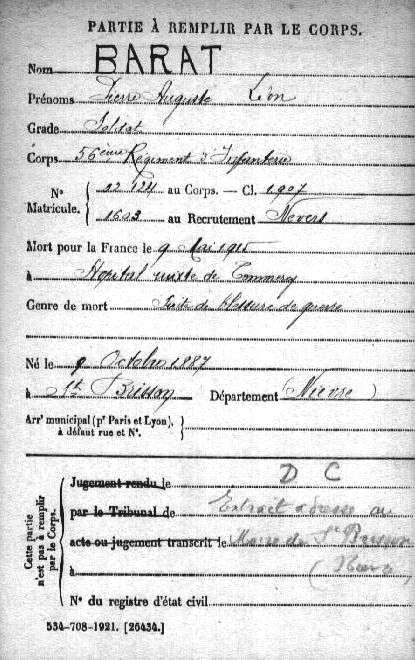 PARTIE À REMPLIR PAR LE CORPS.
Nom BARAT
Prénoms Pierre Auguste Léon
Grade Soldat
Corps 56ème Régiment d'Infanterie
N° Matricule. { 22 124 au Corps. — Cl. 1907
1603 au Recrutement Nevers
Mort pour la France le 9 Mai 1915
à Hopital mixte de Commercy
Genre de mort Suite de blessure de guerre
Né le 9 Octobre 1887
à St Brisson Département Nièvre
Arr' municipal (pr Paris et Lyon), à défaut rue et N°.
Cette partie n'est pas à remplir par le Corps.
D C
Jugement rendu le
par le Tribunal de Extrait adressé au
acte ou jugement transcrit le Maire de St Brisson
à (Nièvre)
N° du registre d'état civil
534-708-1921. [26434.]